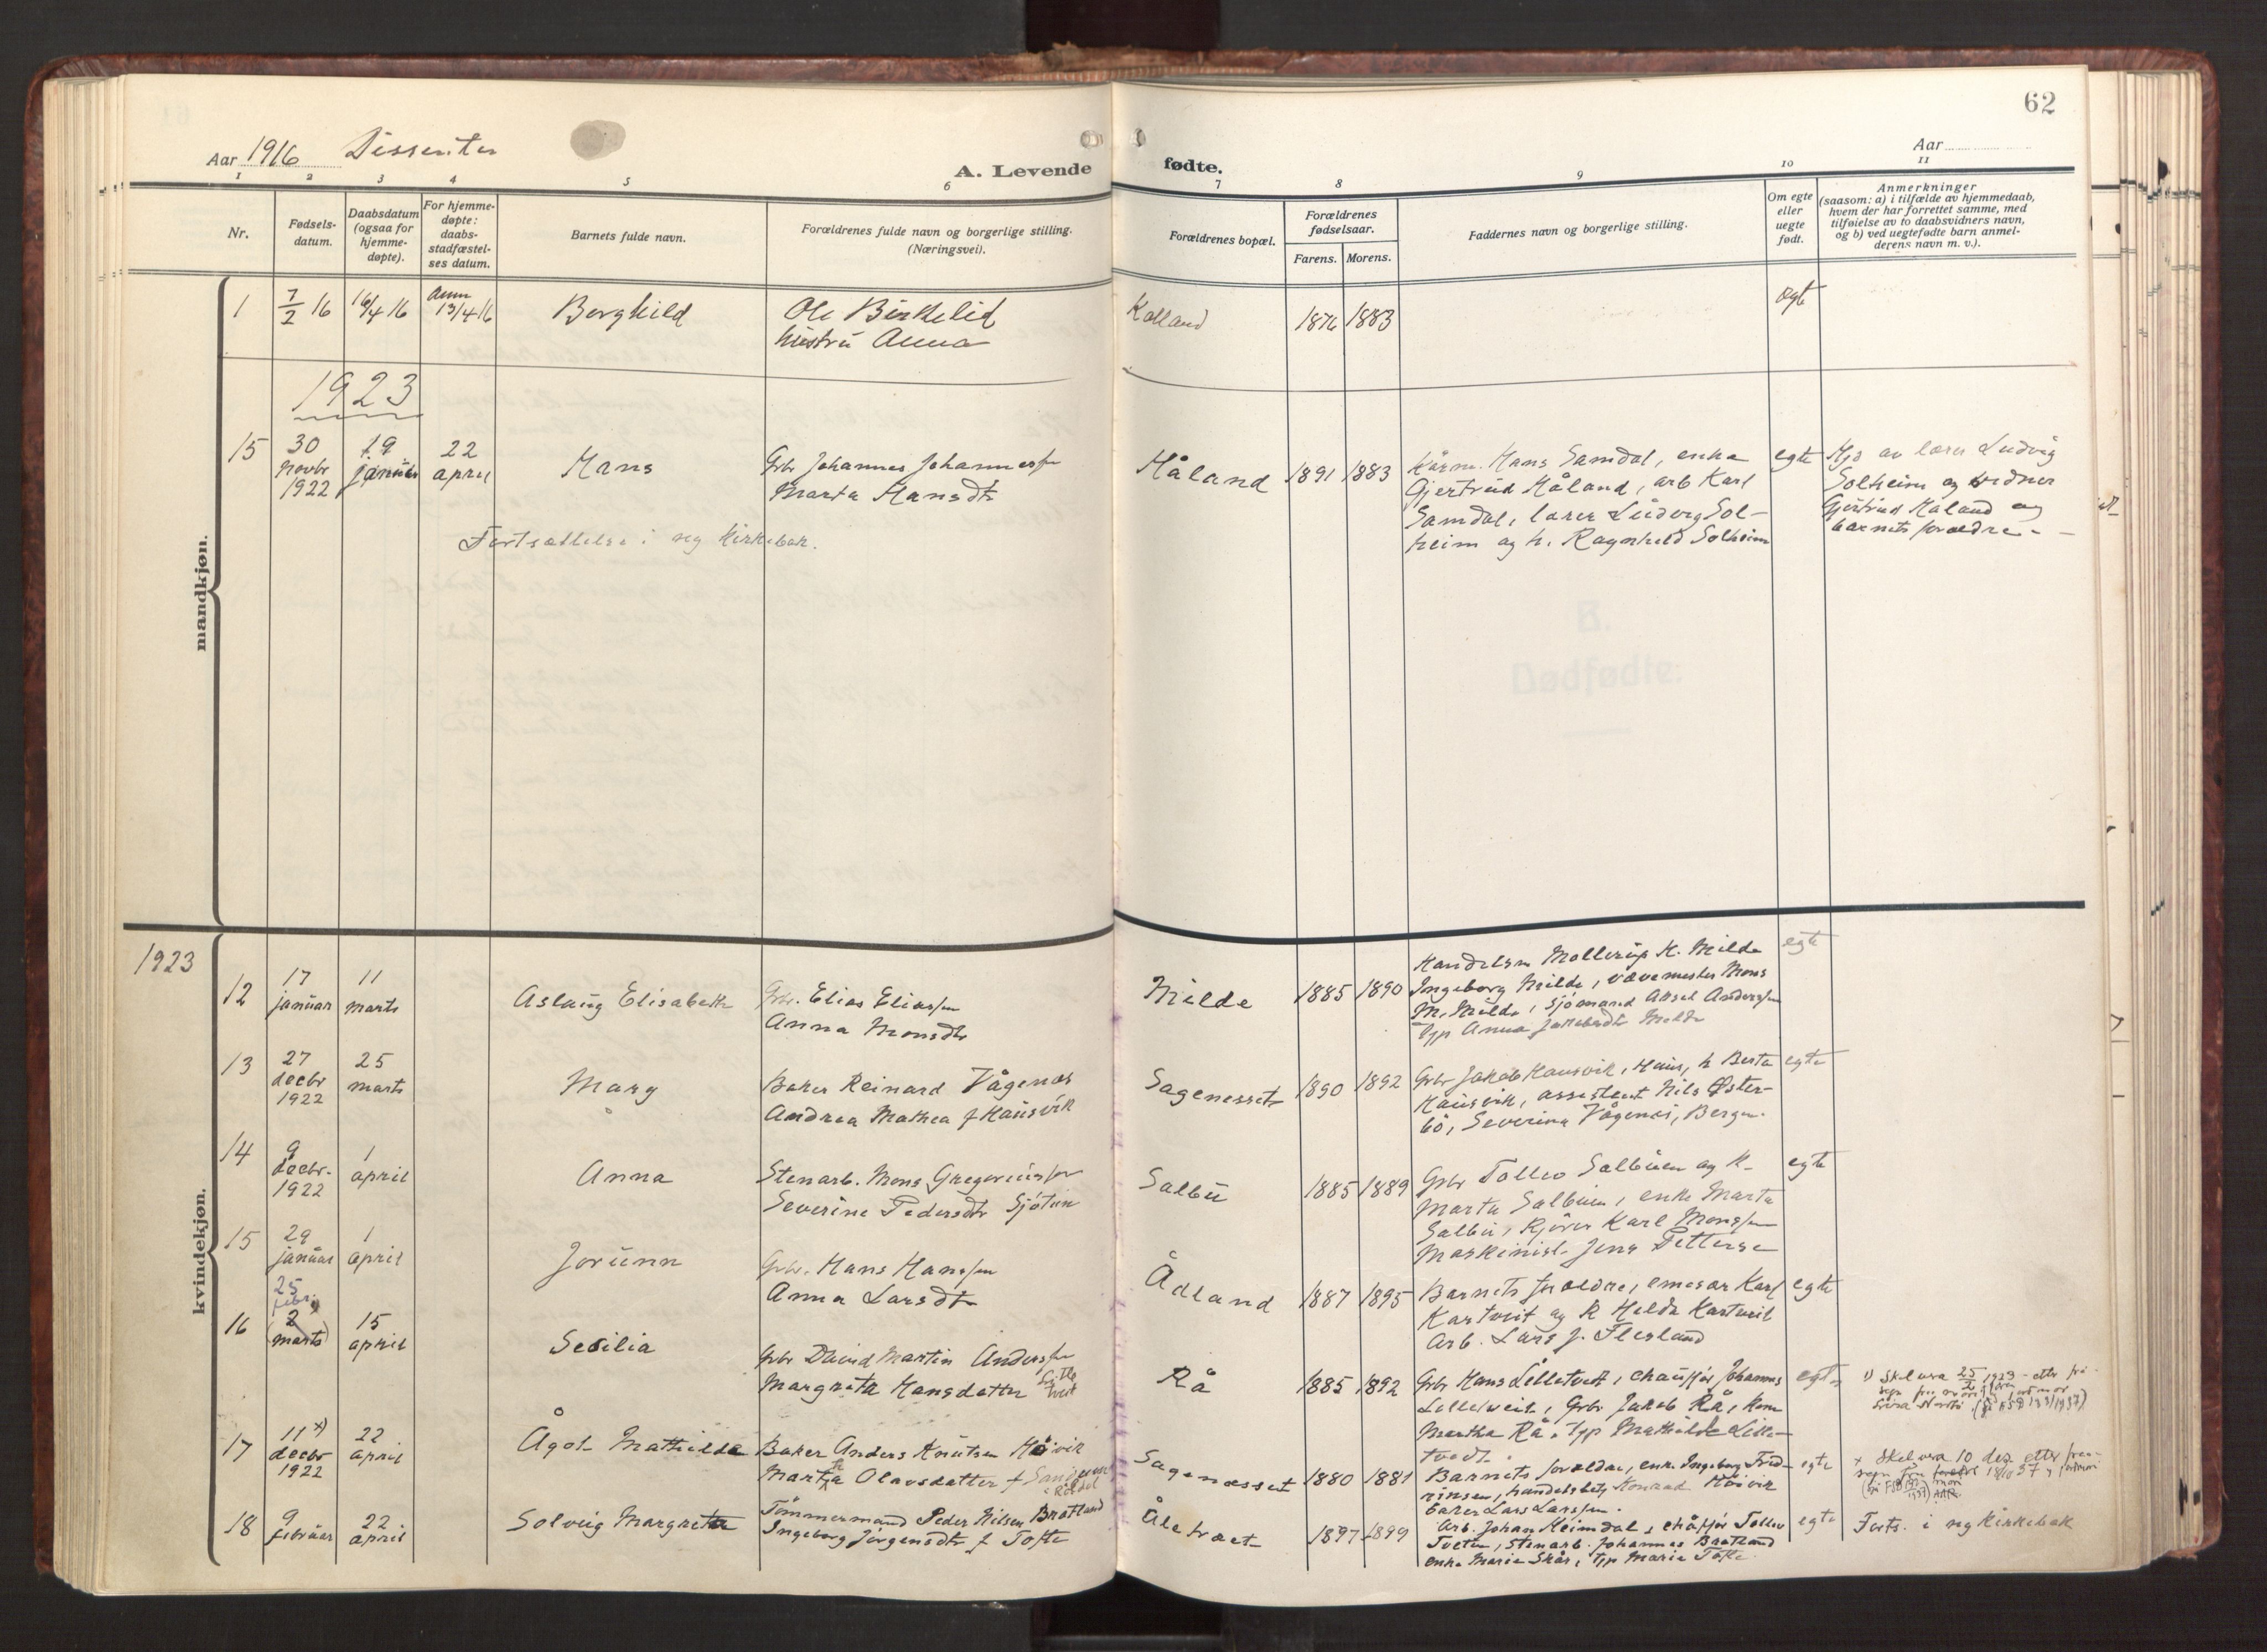 62
Aar 1916 Dissenter
A. Levende
fødte.
Aar
1 2 3 4 5 6 7 8 9 10 11
Nr.
Fødsels-
datum.
Daabsdatum
(ogsaa for
hjemme-
døpte).
For hjemme-
døpte:
daabs-
stadfæstel-
ses datum.
Barnets fulde navn.
Forældrenes fulde navn og borgerlige stilling.
(Næringsvei).
Forældrenes bopæl.
Forældrenes
fødselsaar.
Farens. Morens.
Faddernes navn og borgerlige stilling.
Om egte
eller
uegte
født.
Anmerkninger
(saasom: a) i tilfælde av hjemmedaab,
hvem der har forrettet samme, med
tilføielse av to daabsvidners navn,
og b) ved uegtefødte barn anmel-
derens navn m. v.).
mandkjøn.
1
7/2 16
16/4 16
Anm
13/4 16
Borghild
Ole Birkelid
hustru Anna
Kalland
1876 1883
egte
1923
15
30
novbr
1922
19
januar
22
april
Hans
Gbr Johannes Johannessen
Marta Hansdtr
Håland
1891 1883
Hans Samdal, enke
Gjertrud Håland, arb Karl
Samdal, lærer Ludvig Sol-
heim og h. Ragnhild Solheim
egte
Hjd av lærer Ludvig
Solheim og vidner
Gjertrud Håland og
barnets forældre.
Fortsættelse i ny kirkebok.
kvindekjøn.
1923
12
17
januar
11
marts
Aslaug Elisabeth
Gbr. Elias Eliassen
Anna Monsdtr
Milde
1885 1890
Handelsm Mollerup H. Milde
Ingeborg Milde, vævemester Mons
M. Milde, sjömand Aksel Anderssen
Typ Anna Jakobsdtr Milde
egte
13
27
decbr
1922
25
marts
Mary
Baker Reinard Vågenes
Andrea Mathea f Hausvik
Sagenesset
1890 1892
Gbr Jakob Hausvik, Haus, h Berta
Hausvik, assistent Nils Øster-
bö, Severine Vågenes, Bergen.
egte
14
9
decbr.
1922
1
april
Anna
Stenarb. Mons Gregoriussen
Severine Pedersdtr Sjötun
Salbu
1885 1889
Gbr Tollev Salbuen og h.
Marta Salbuen, enke Marta
Salbu, Kjörer Karl Monssen
Maskinist. Jens Pettersen
egte
15
29
januar
1
april
Jorunn
Gbr. Hans Hanssen
Anna Larsdtr
Ådland
1887 1895
Barnets forældre, emissær Karl
Kartveit og h Helda Kartveit
Arb. Lars J. Flesland
egte
16
25
febr.
(2
marts)
15
april
Sesilia
Gbr David Martin Anderssen
Margreta Hansdatter Lille
tveit
Rå
1885 1892
Gbr Hans Lilletveit, chauffør Johannes
Lilletveit, Gbr Jakob Rå, kone
Martha Rå, typ Mathilde Lille-
tvedt.
egte
1) Skal vera 25/2 1923 - etter frå-
segn frå
17
11 x)
decbr
1922
22
april
Ågot Mathilde
Baker Anders Knutsen Høvik
Martha Olavsdatter f Sandven
i Röldal
Sagenæsset
1880 1881
Barnets forældre, enke Ingeborg Fred-
riksen, handelsbetj Konrad Høivik
baker Lars Larssen.
egte
x Skal vera 10 des etter frå-
segn frå
18
9
februar
22
april
Solveig Margreta
Tömmermand Peder Nilsen Bratland
Ingeborg Jörgensdtr f Tofte
Åletræet
1897 1899
Arb. Johan Heimdal, chåffør Tollev
Tveten, Stenarb. Johannes Bratland
enke Marie Skår, typ Marie Tofte
egte
Forts. i ny kirkebok